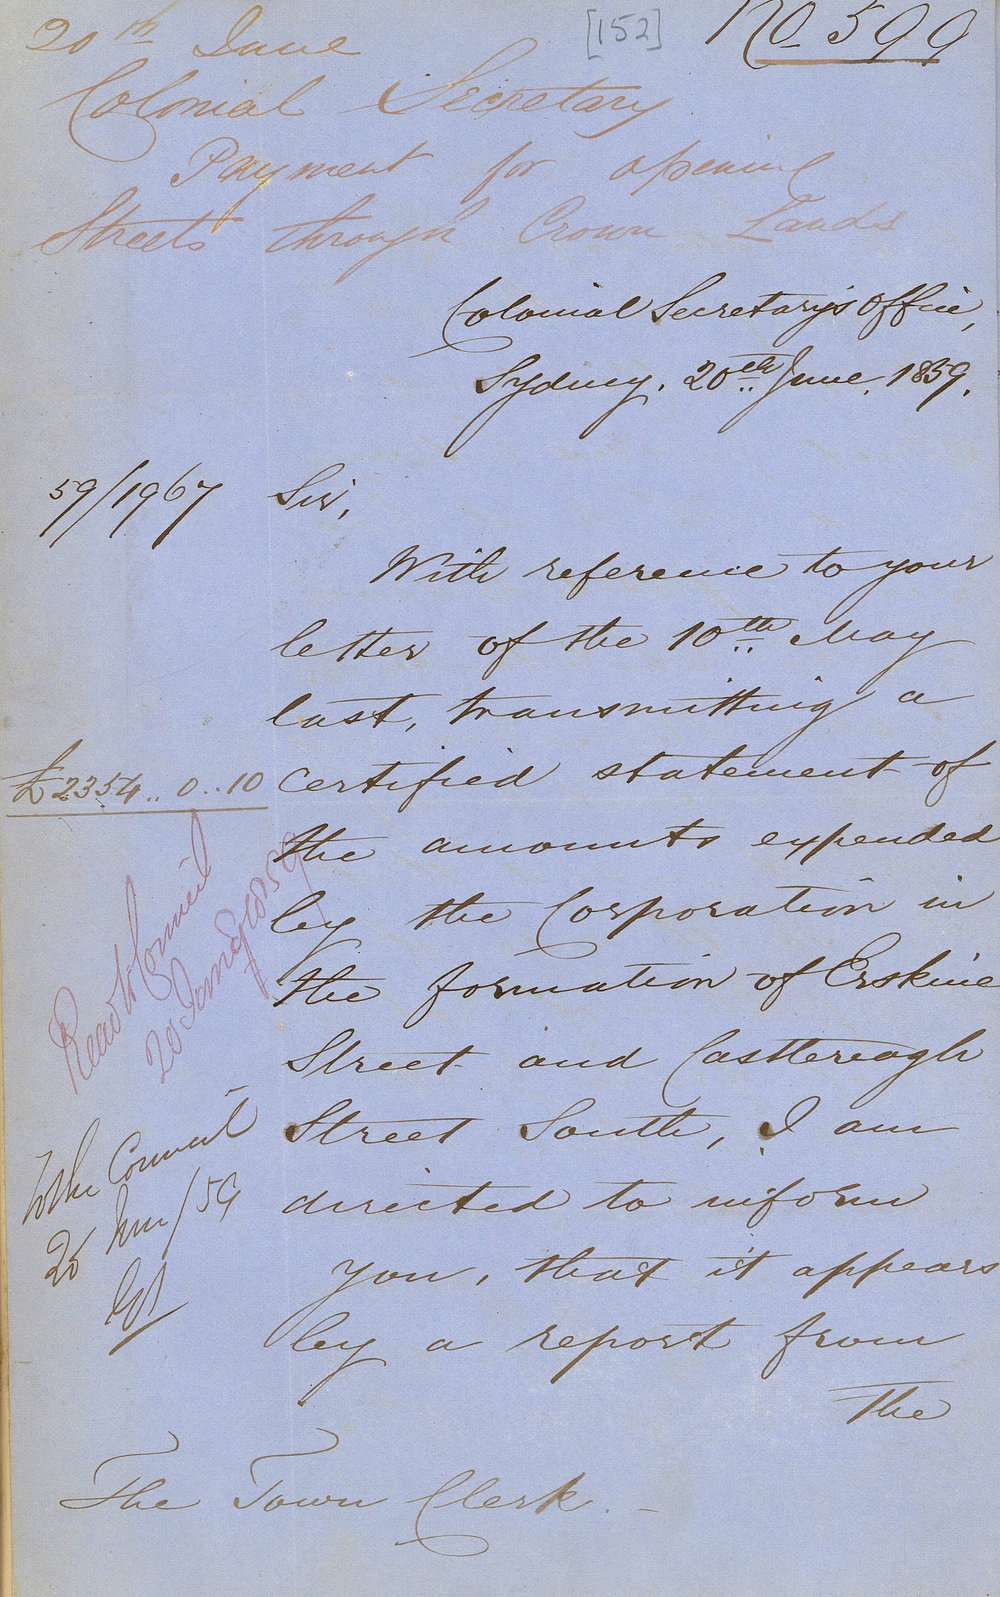 [152]
No 599
20th June
Colonial Secretary
Payment for opening
Streets through Crown Lands
Colonial Secretary's Office,
Sydney. 20th June. 1859.
59/1967
Sir,
With reference to your
letter of the 10th May
last, transmitting a
£2354..0..10
certified statement of
the amounts expended
by the Corporation in
the formation of Erskine
Street and Castlereagh
Street South, I am
directed to inform
you, that it appears
by a report from
the
Read to Council
20 June 1859
To the Council
20 June/59
The Town Clerk.